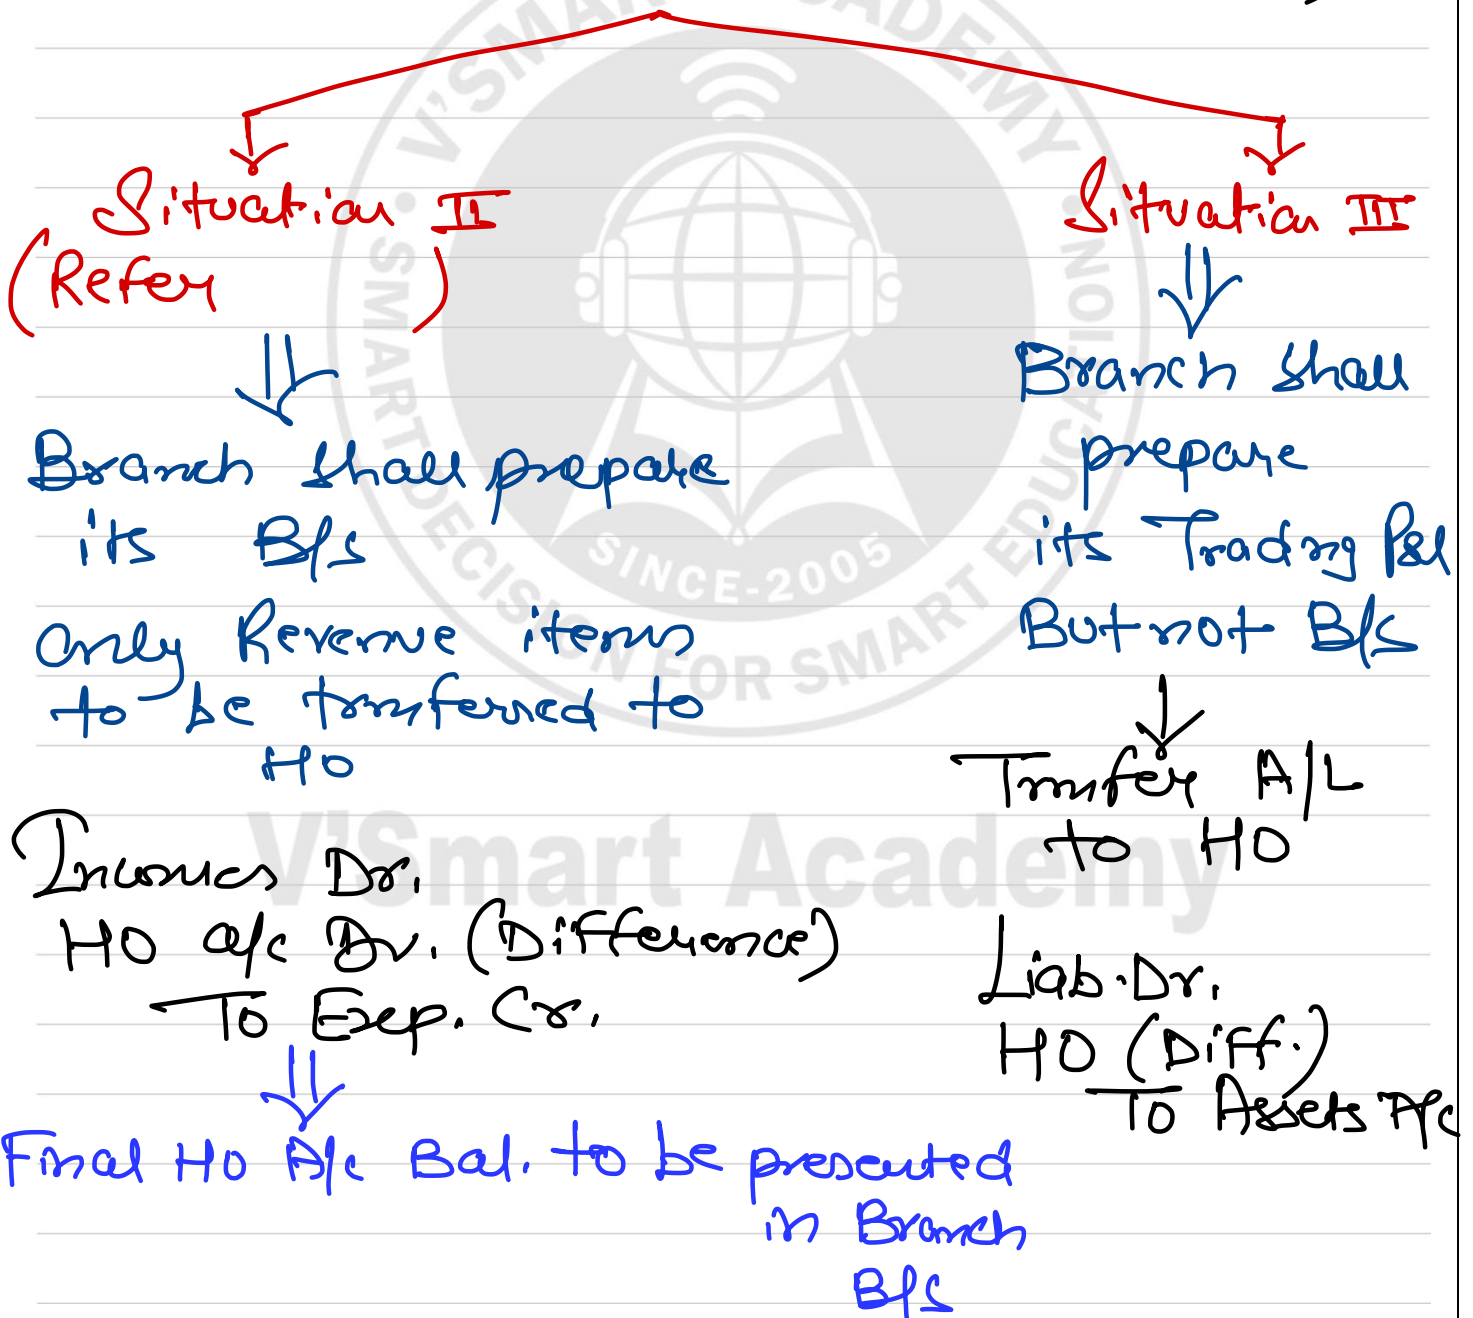 Situation II
(Refer )
Branch shall prepare
its B/s
only Revenue items
to be transferred to
HO
Incomes Dr.
HO a/c Dr. (Difference)
To Exp. Cr.
Final HO A/c Bal. to be presented
in Branch
B/s
Situation III
Branch shall
prepare
its Trading P&L
But not B/s
Transfer A/L
to HO
Liab. Dr.
HO (Diff.)
To Assets A/c
V'SMART ACADEMY
SMART DECISION FOR SMART EDUCATION
SINCE-2005
V'Smart Academy